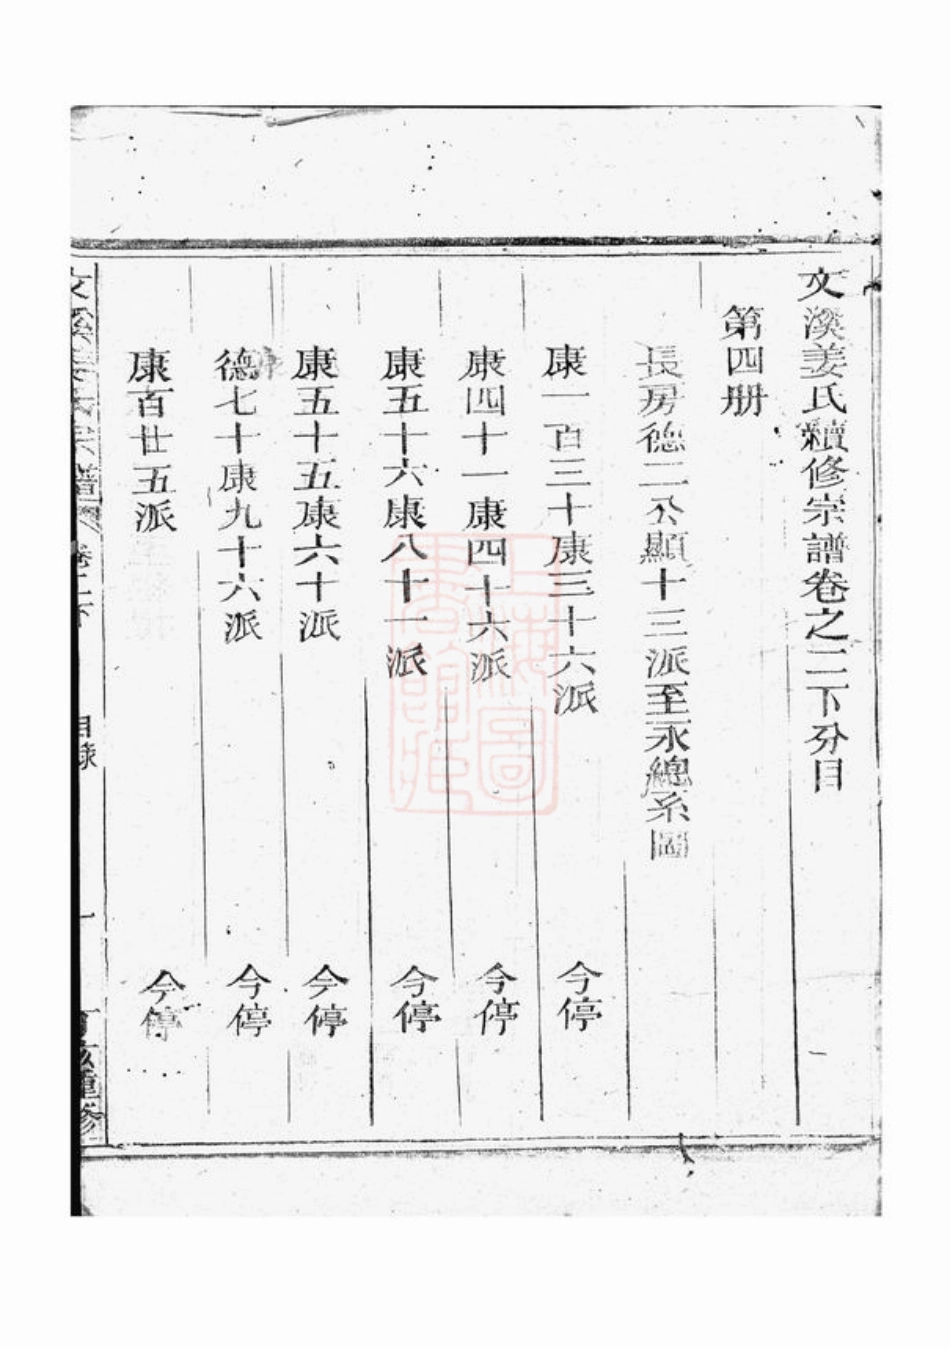 文溪姜氏續修宗譜卷之二下分目
第四册
長房德二公顯十三派至永總系圖
康一百三十康三十六派 今停
康四十一康四十六派 今停
康五十六康八十一派 今停
康五十五康六十派 今停
德七十康九十六派 今停
康百廿五派 今停
文溪姜氏宗譜 卷二下 目錄 一 重修